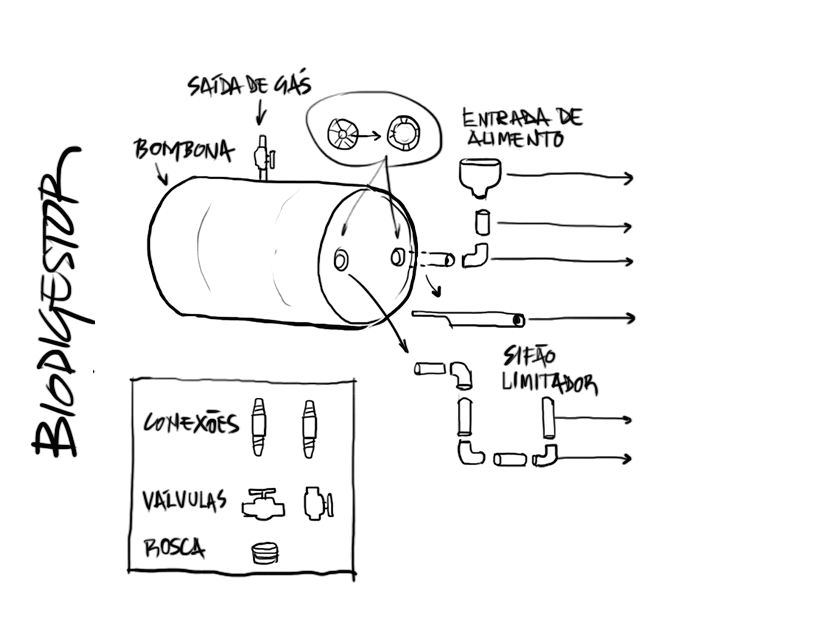 BIODIGESTOR
SAÍDA DE GÁS
BOMBONA
ENTRADA DE
ALIMENTO
SIFÃO
LIMITADOR
CONEXÕES
VÁLVULAS
ROSCA